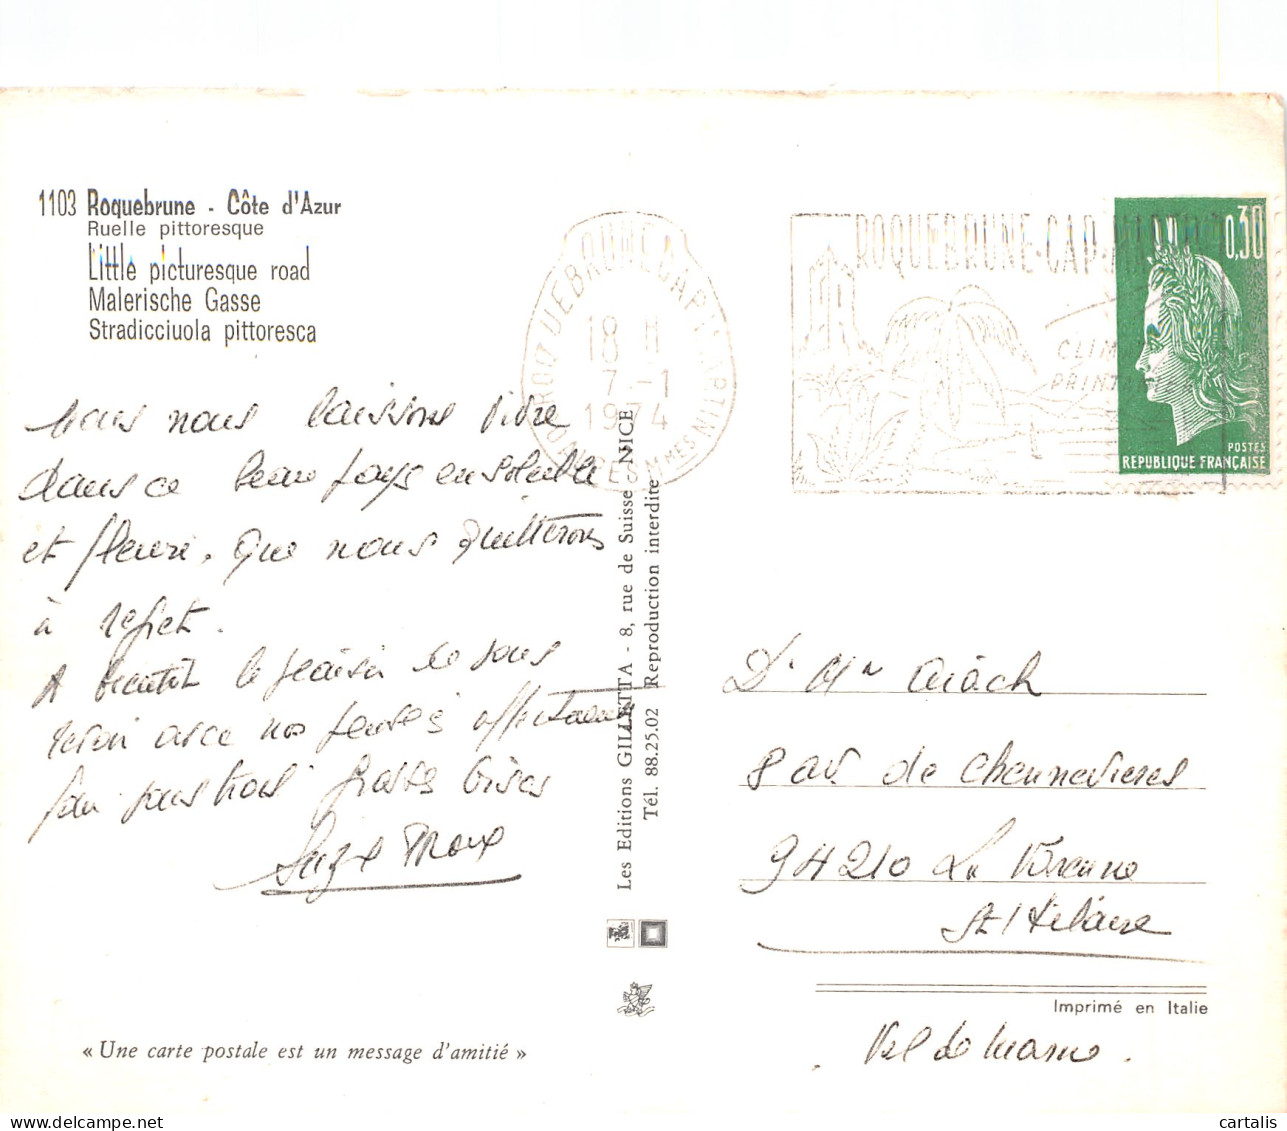 1103 Roquebrune - Côte d'Azur
Ruelle pittoresque
Little picturesque road
Malerische Gasse
Stradicciuola pittoresca
nous laissons vivre
dans ce beau pays ensoleillé
et fleuri. Que nous quitterons
à regret.
A bientôt le plaisir de vous
revoir avec nos pensées affectueuses
pour vous trois grosses bises
« Une carte postale est un message d'amitié »
Les Editions GILLETTA - 8, rue de Suisse - NICE
Tél. 88.25.02 Reproduction interdite
ROQUEBRUNE CAP MARTIN
18 H
7 - 1
1974
ALPES MMES
ROQUEBRUNE-CAP-
CLIM
PRINT
0,30
POSTES
REPUBLIQUE FRANÇAISE
8 av. de Chennevieres
94210 La Varenne
St Hilaire
Imprimé en Italie
Val de Marne.
cartalis